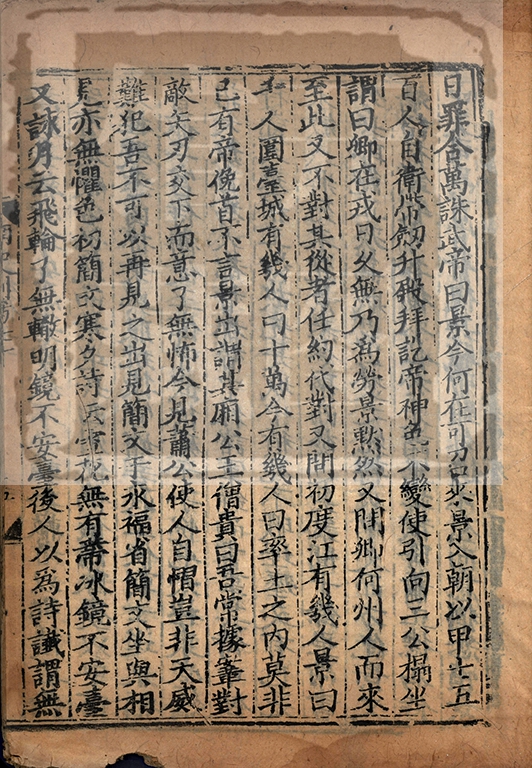 曰罪合萬誅武帝曰景今何在可召來景入朝以甲士五
百人自衛帶劒升殿拜訖帝神色不變使引向三公榻坐
謂曰卿在戎日久無乃爲勞景黙然又問卿何州人而來
至此又不對其從者任約代對又問初度江有幾人景曰
千人圍臺城有幾人曰十萬今有幾人曰率土之內莫非
已有帝俛首不言景出謂其廂公王僧貴曰吾常據鞌對
敵矢刃交下而意了無怖今見蕭公使人自慴豈非天威
難犯吾不可以再見之出見簡文于永福省簡文坐與相
見亦無懼色初簡文寒夕詩云雪花無有蔕冰鏡不安臺
又詠月云飛輪了無轍明鏡不安臺後人以爲詩讖謂無